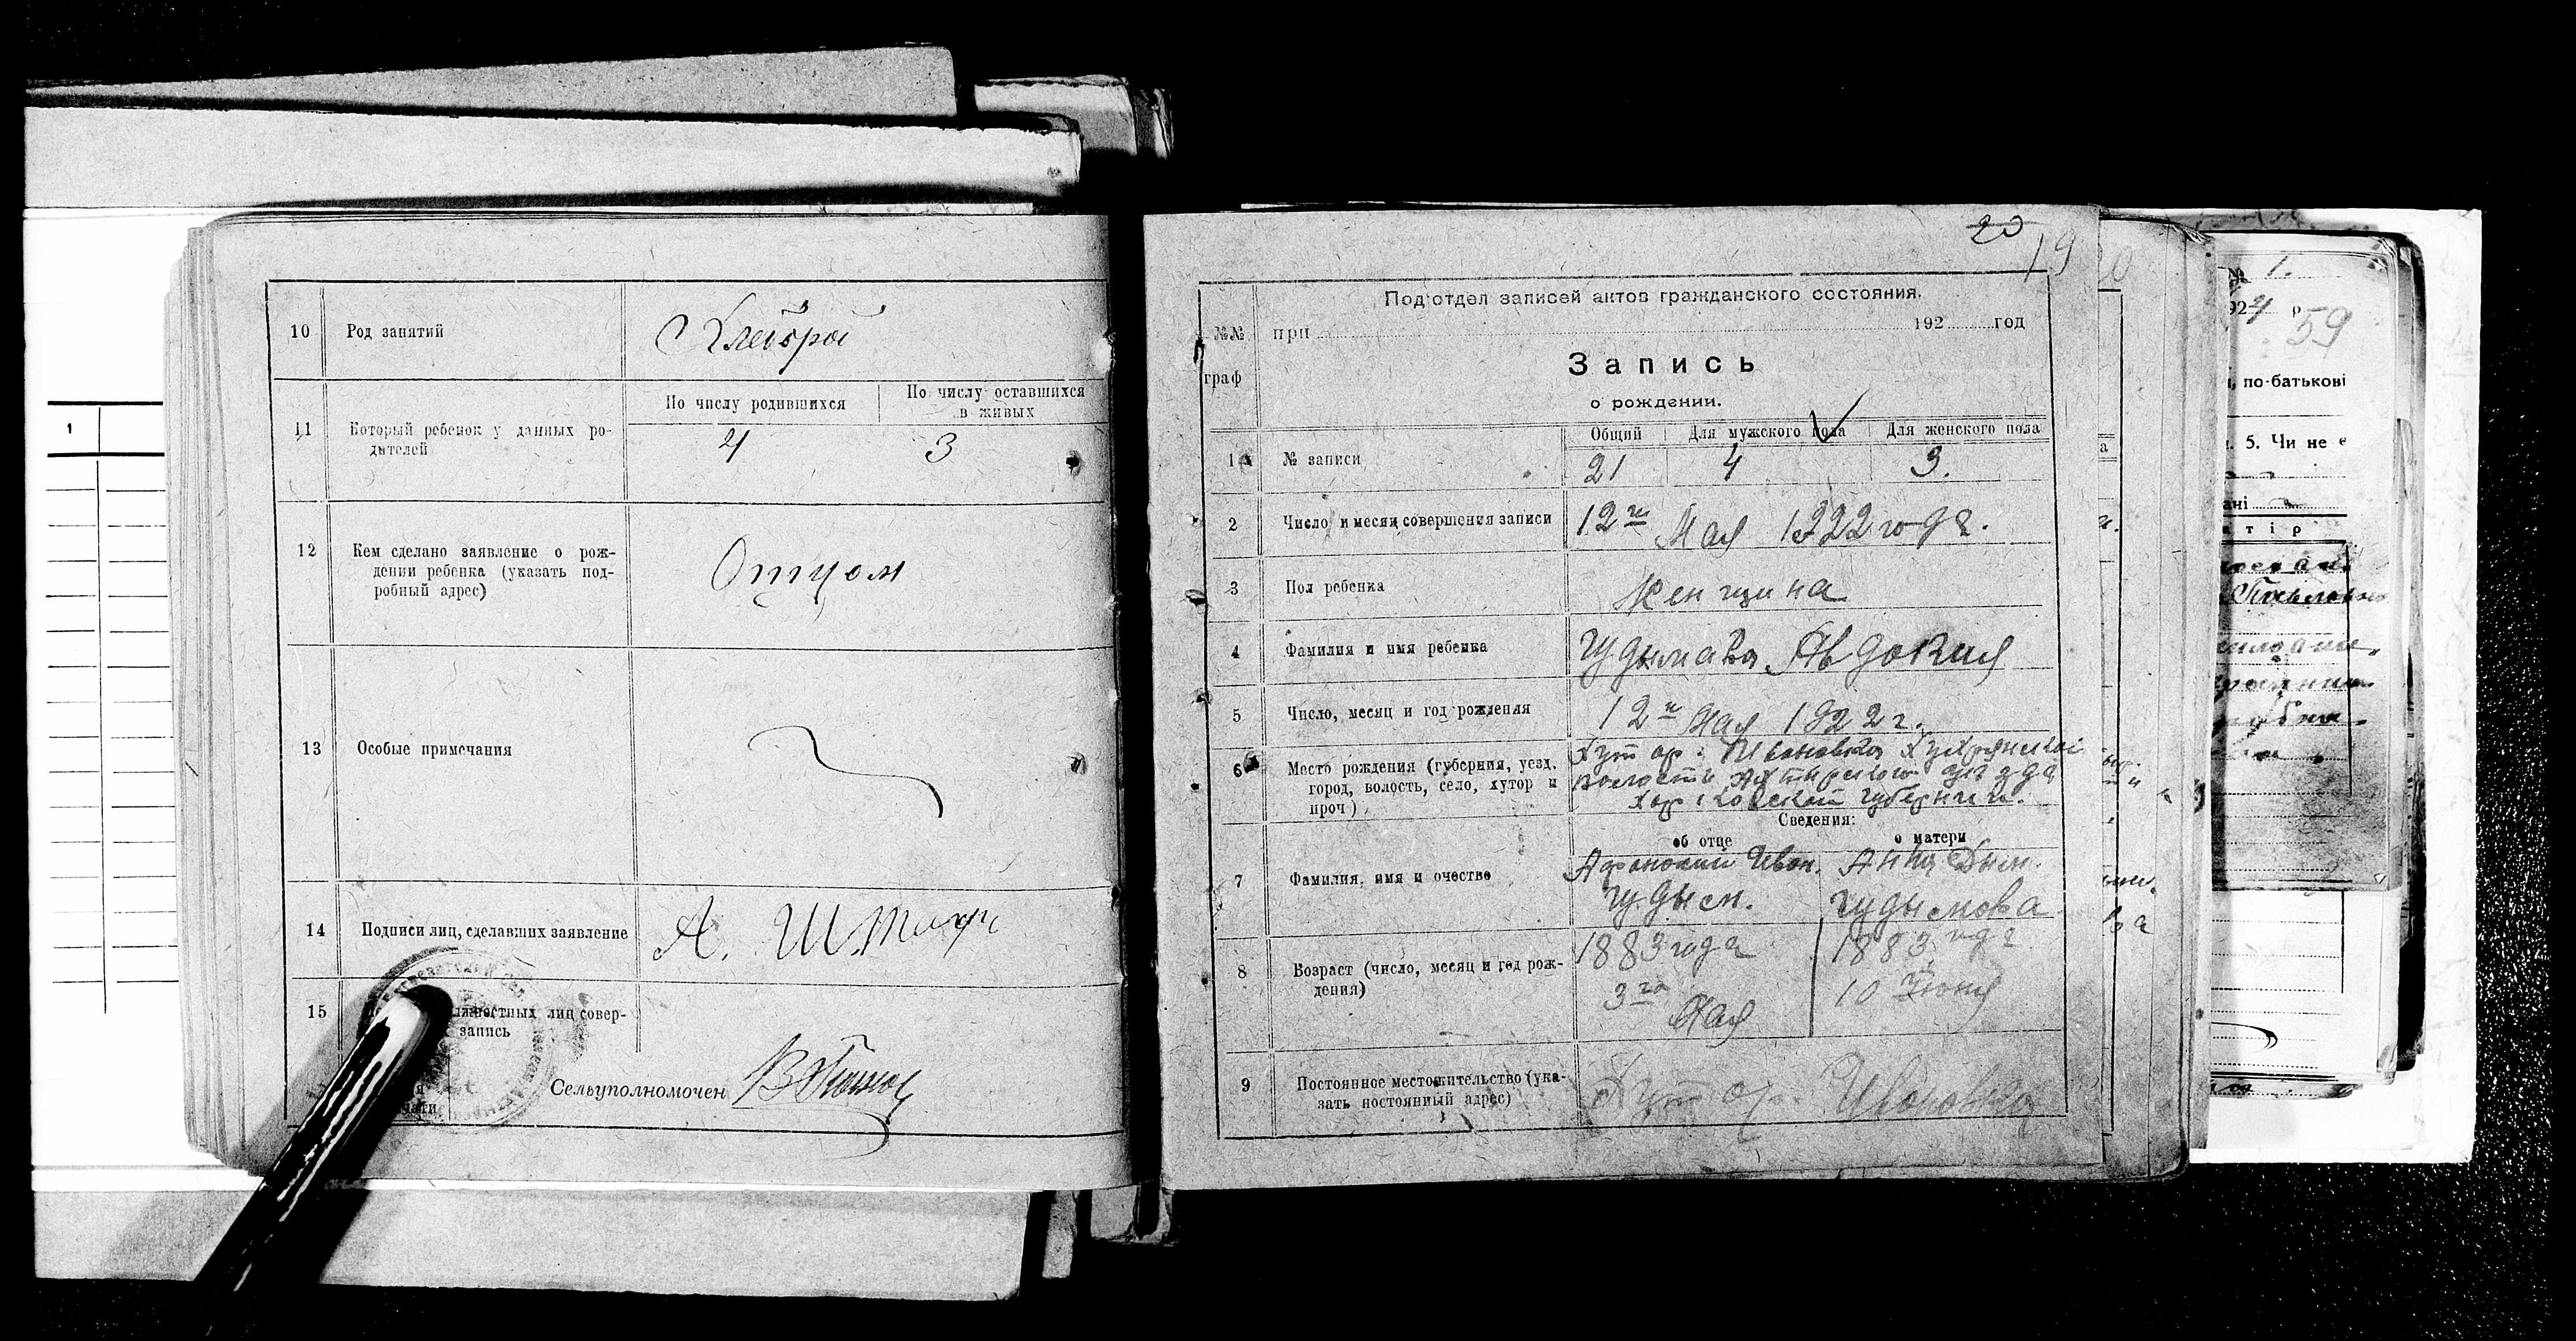 10 Род занятий
Хлебороб
11 Который ребенок у данных ро-
дителей
По числу родившихся
По числу оставшихся
в живых
4 3
12 Кем сделано заявление о рож-
дении ребенка (указать под-
робный адрес)
Отцом
13 Особые примечания
14 Подписи лиц, сделавших заявление
А.
15
лиц совер-
запись
Сельуполномочен
20
19
Под'отдел записей актов гражданского состояния.
№№
граф
при 192 год
Запись
о рождении.
Общий Для мужского пола Для женского пола
1 № записи
21 4 3.
2 Число и месяц совершения записи
12го Мая 1922 года.
3 Пол ребенка
Женщина
4 Фамилия и имя ребенка
Гудымова Авдокия
5 Число, месяц и год рождения
12го Мая 1922 г.
6 Место рождения (губерния, уезд,
город, волость, село, хутор и
проч)
Хутор. Ивановка
волости Ахтирского уезда
губернии.
Сведения:
об отце о матери
7 Фамилия, имя и очество
Афанасий Иван. Анна
Гудым. Гудымова
8 Возраст (число, месяц и год рож-
дения)
1883 года 1883 года
3го Мая 10 Июня
9 Постоянное местожительство (ука-
зать постоянный адрес)
Хутор. Ивановка
№ 1.
924 р
59
, по-батькові
5. Чи не є
ані
тір
1